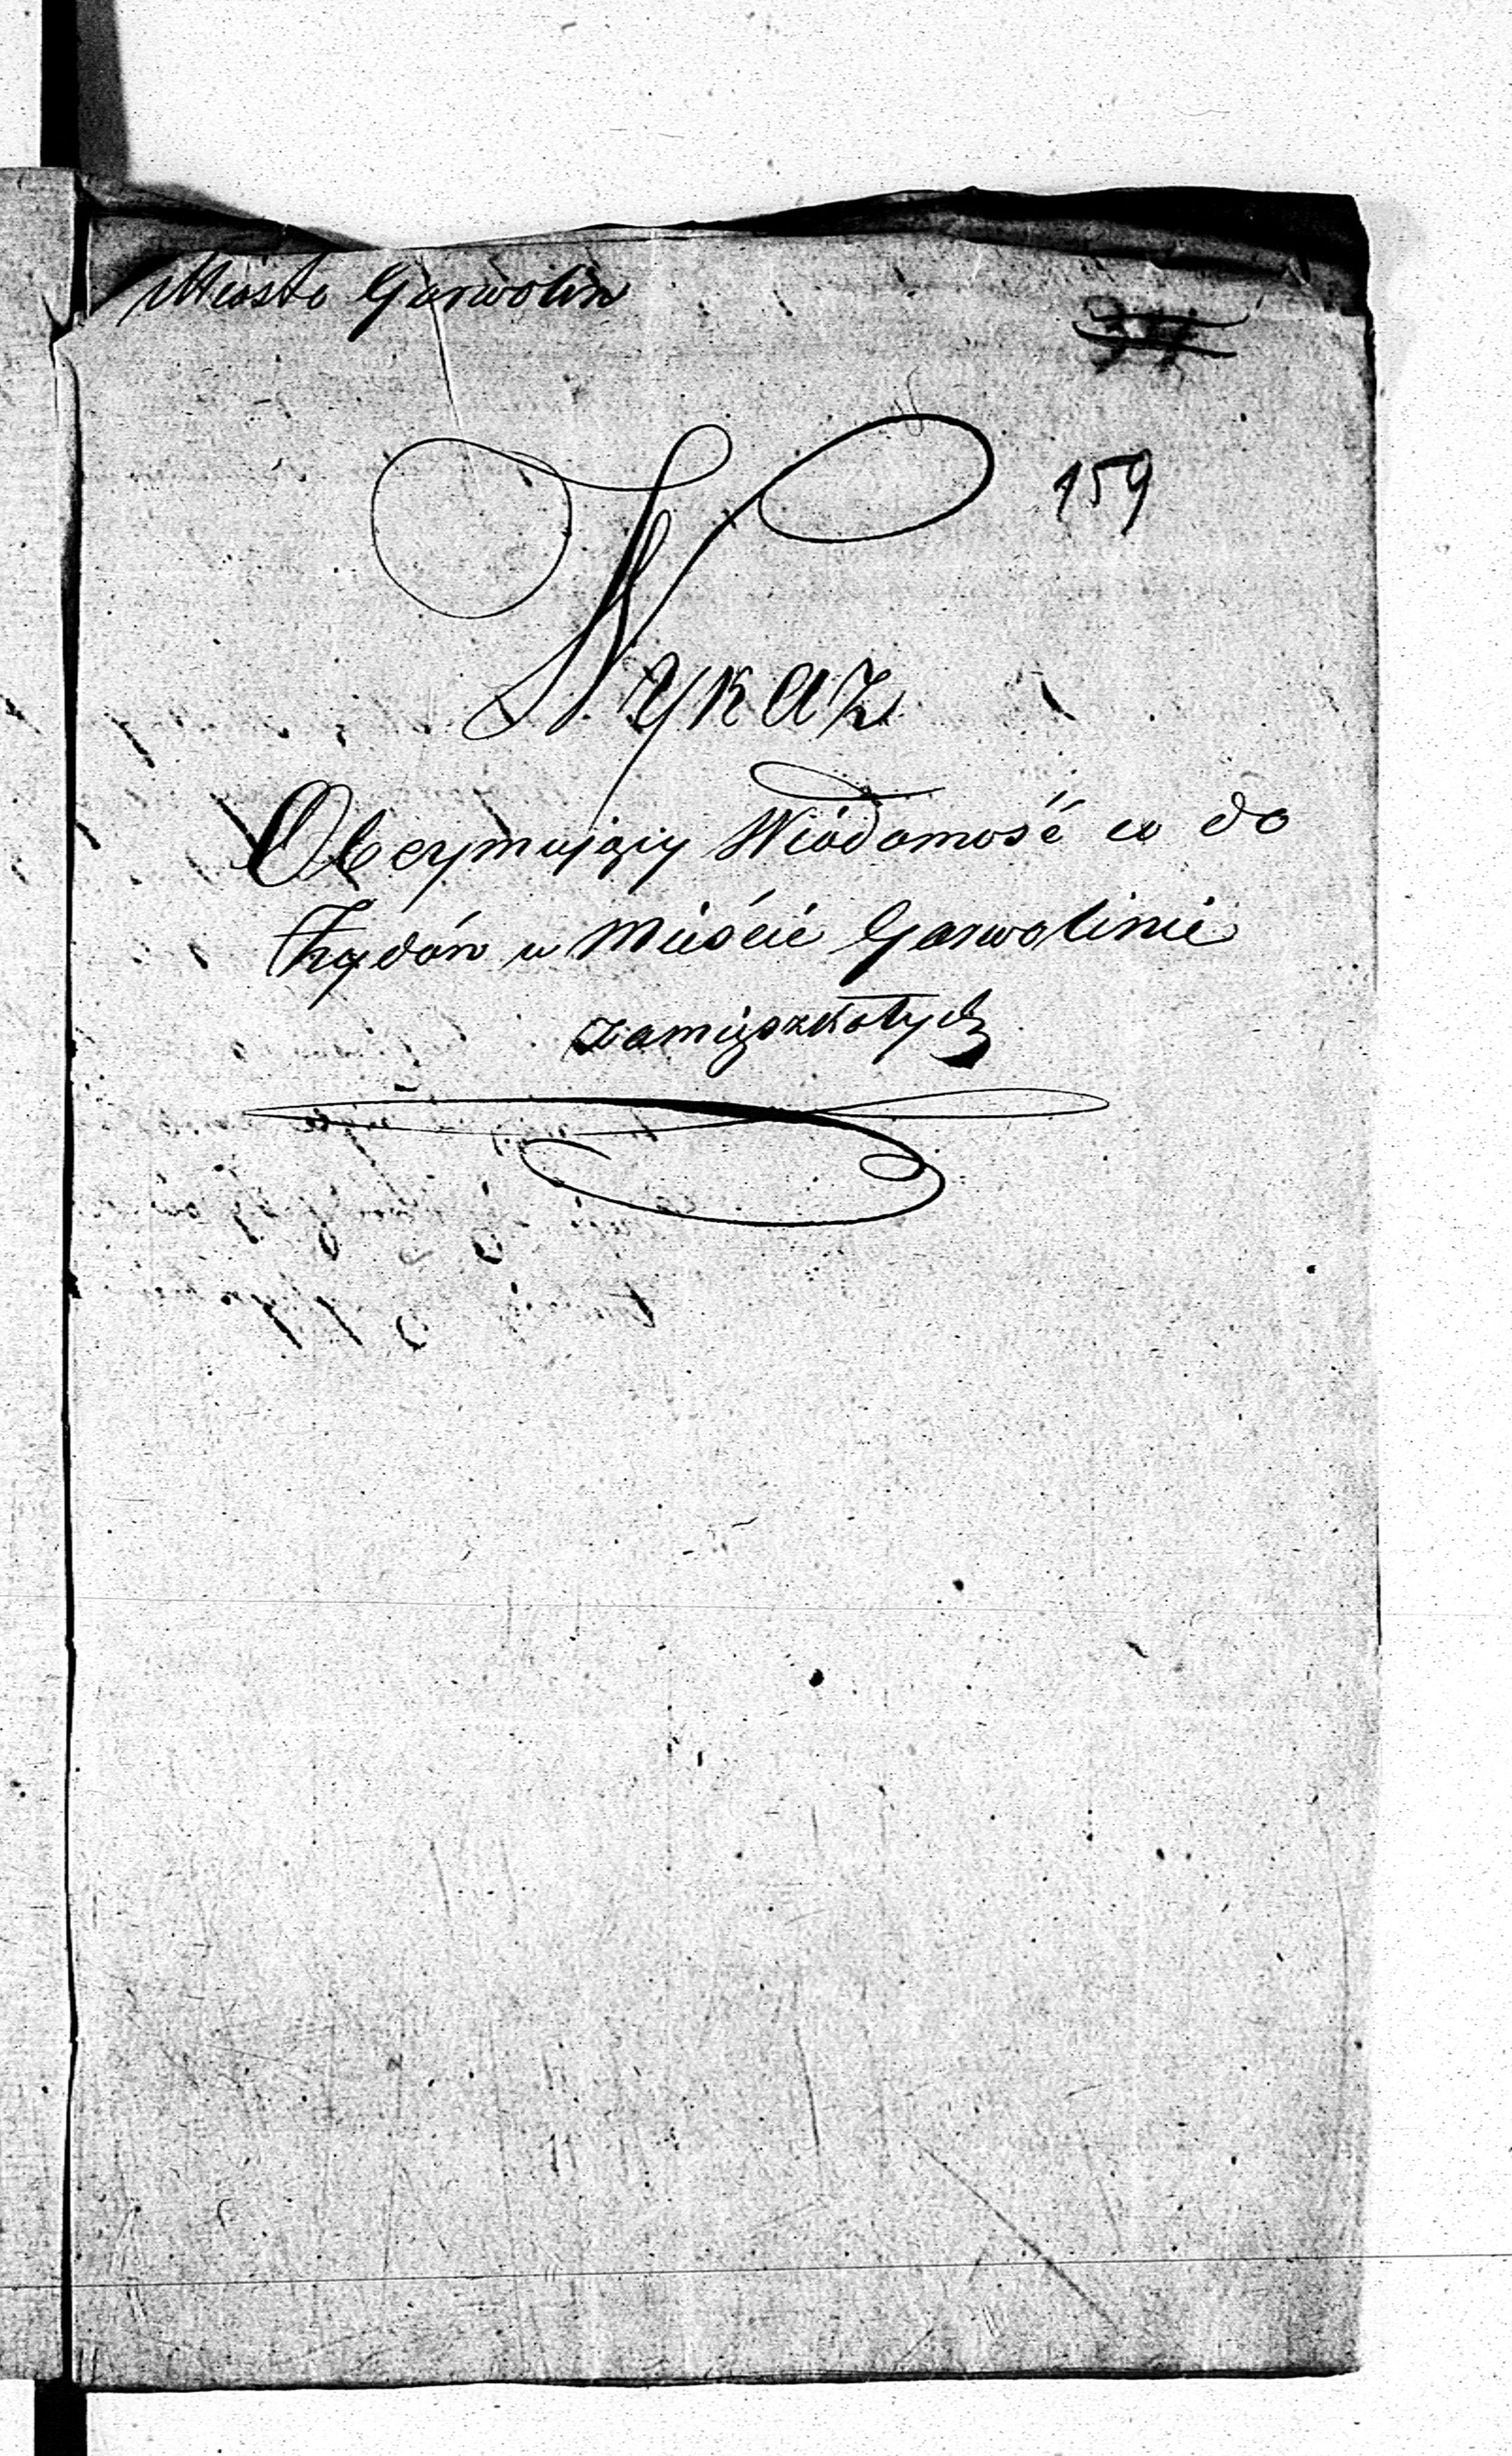 Miasto Garwolin
159
Wykaz
Obeymuiący Wiadomość co do
Żydów w Mieście Garwolinie
zamięszkałych